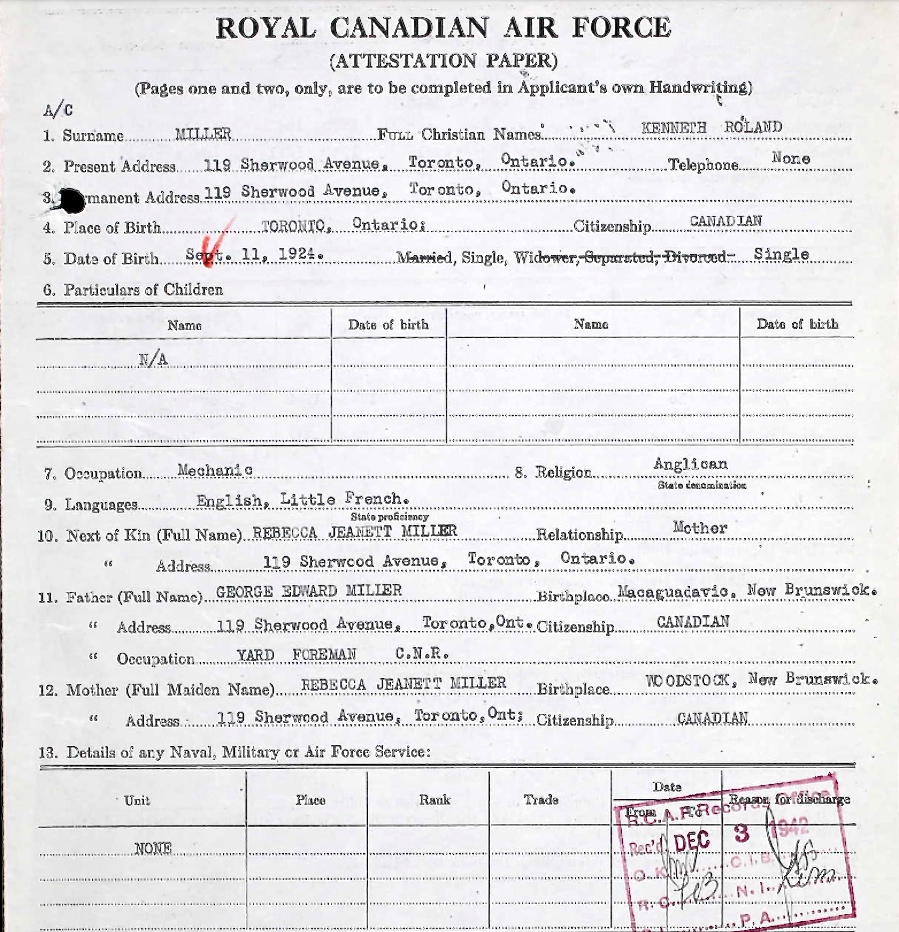 ROYAL CANADIAN AIR FORCE
(ATTESTATION PAPER)
(Pages one and two, only, are to be completed in Applicant's own Handwriting)
A/C
1. Surname MILLER Full Christian Names KENNETH ROLAND
2. Present Address 119 Sherwood Avenue, Toronto, Ontario. Telephone None
3. rmanent Address 119 Sherwood Avenue, Toronto, Ontario.
4. Place of Birth TORONTO, Ontario; Citizenship CANADIAN
5. Date of Birth Sept. 11, 1924. Married, Single, Widower, Separated, Divorced Single
6. Particulars of Children
Name Date of birth Name Date of birth
N/A
7. Occupation Mechanic 8. Religion Anglican
State denomination
9. Languages English, Little French.
State proficiency
10. Next of Kin (Full Name) REBECCA JEANETT MILLER Relationship Mother
" Address 119 Sherwood Avenue, Toronto, Ontario.
11. Father (Full Name) GEORGE EDWARD MILLER Birthplace Macaguadavic, New Brunswick.
" Address 119 Sherwood Avenue, Toronto,Ont. Citizenship CANADIAN
" Occupation YARD FOREMAN C.N.R.
12. Mother (Full Maiden Name) REBECCA JEANETT MILLER Birthplace WOODSTOCK, New Brunswick.
" Address 119 Sherwood Avenue, Toronto,Ont; Citizenship CANADIAN
13. Details of any Naval, Military or Air Force Service:
Unit Place Rank Trade Date Reason for discharge
From To
NONE
R.C.A.F. Records Office
Rec'd DEC 3 1942
O.K. C.I.B.
R.C. N.I.
P.A.